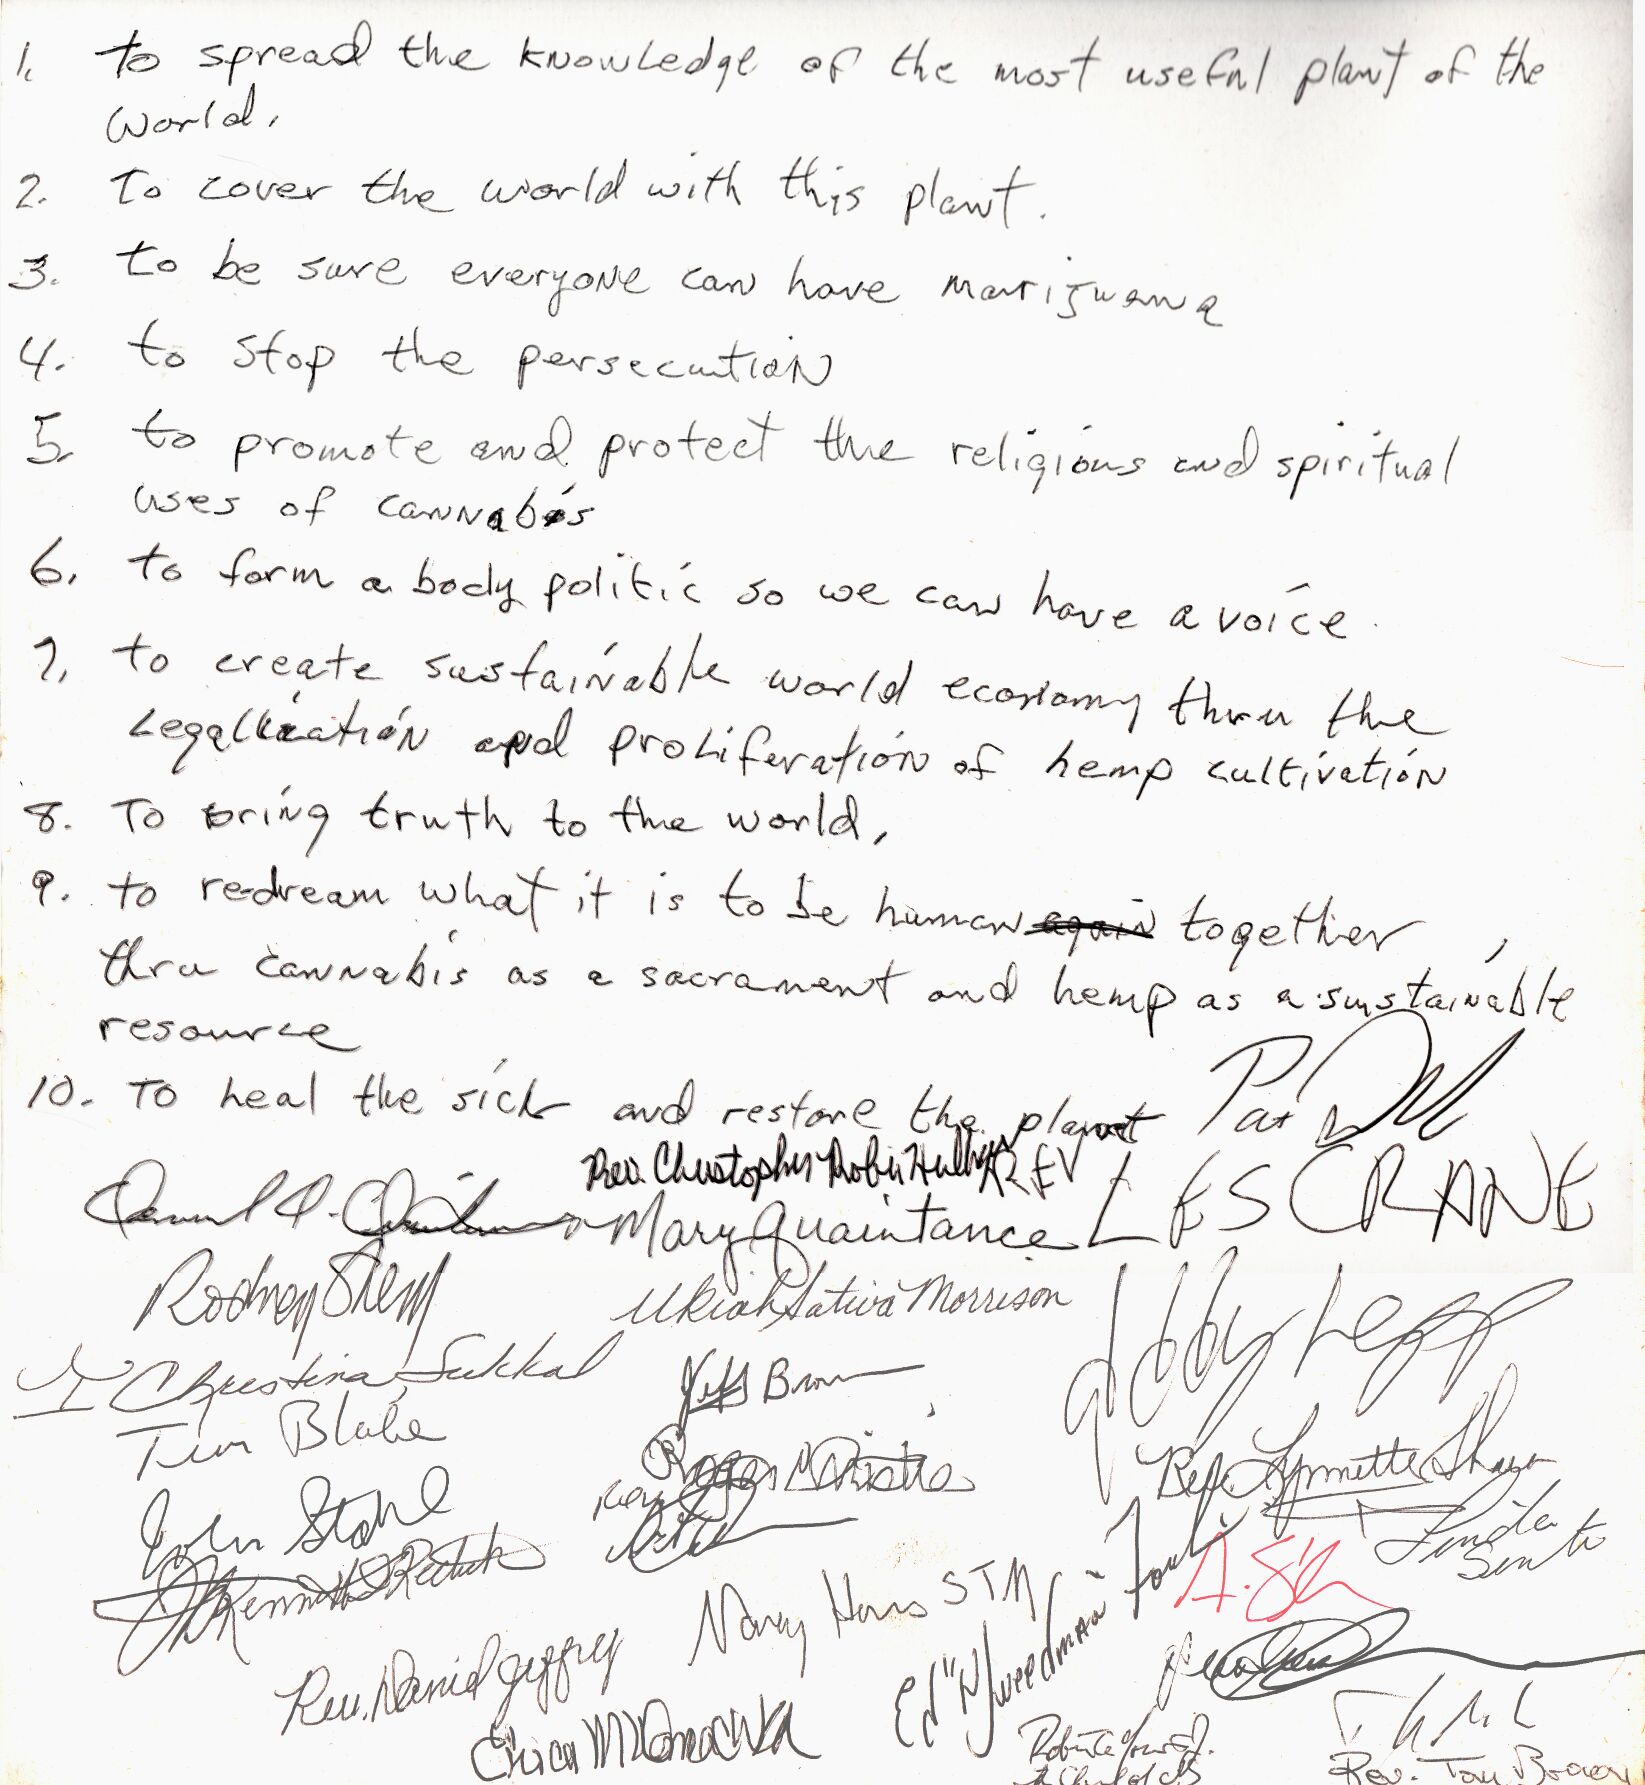 1. to spread the knowledge of the most useful plant of the
world.
2. To cover the world with this plant.
3. to be sure everyone can have marijuana
4. to stop the persecution
5. to promote and protect the religious and spiritual
uses of cannabis
6. to form a body politic so we can have a voice
7. to create sustainable world economy thru the
Legalization and proliferation of hemp cultivation
8. To bring truth to the world.
9. to redream what it is to be human again together,
thru cannabis as a sacrament and hemp as a sustainable
resource
10. To heal the sick and restore the planet Pat
Rev. Christopher Robin REV
Mary Quaintance LES CRANE
Rodney
Ukiah Sativa Morrison
Eddy Lepp
Christina Sukkal
Jeff Brown
Tim Blake
Roger Christie
Rev. Lynnette Shaw
John Stahl
Linda Senti
Kenneth
Nancy
Ed "NJweedman"
Rev. David Jeffrey
Erica
Rev. Tom Brown